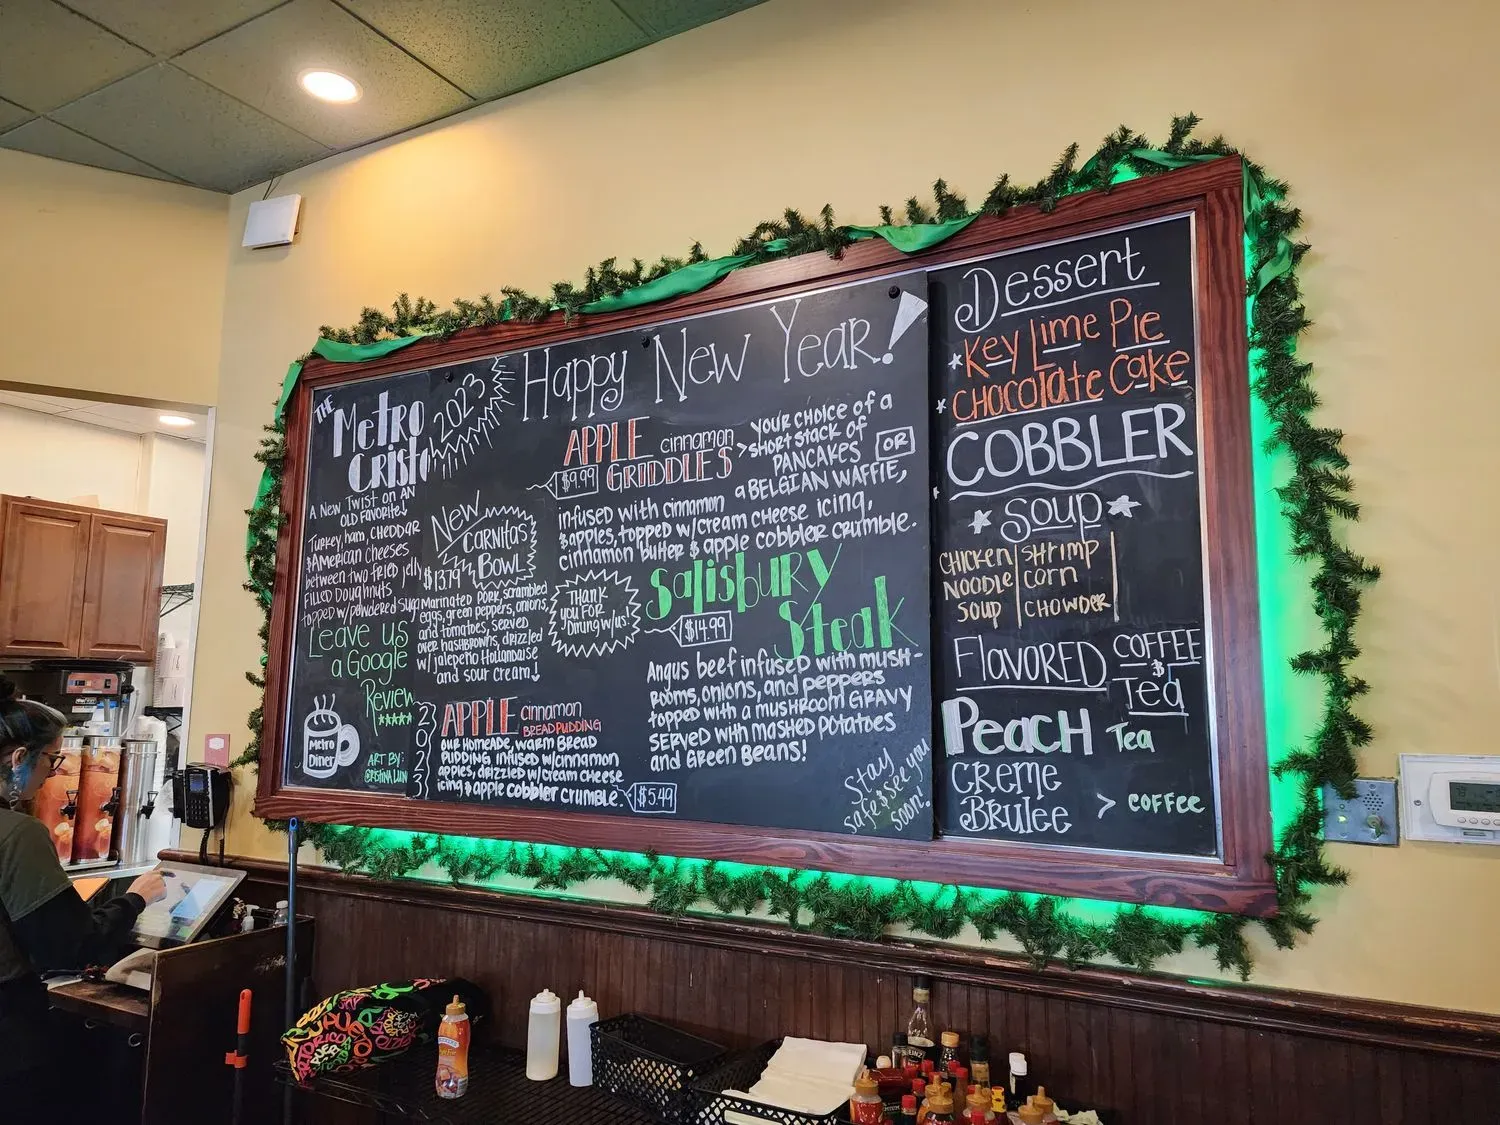 THE
Metro
Cristo
A New Twist on AN
OLD FAVORITE!
Turkey, ham, CHEDDAR
& American cheeses
between two fried jelly
FILLED Doughnuts
topped w/ powdered sugar
Leave us
a Google
Review
Metro
Diner
ART BY:
2023
Happy New Year!
New
Carnitas
Bowl
$13.79
Marinated Pork, scrambled
eggs, green peppers, onions,
and tomatoes, served
over hashbrowns, drizzled
w/ jalepeño Hollandaise
and sour cream!
APPLE cinnamon
GRIDDLES
$9.99
YOUR CHOICE OF A
SHORT STACK OF
PANCAKES OR
a BELGIAN WAFFLE,
infused with cinnamon
& apples, topped w/ cream cheese icing,
cinnamon butter & apple cobbler crumble.
THANK
YOU FOR
Dining w/us!
Salisbury
Steak
$14.99
Angus beef infused with mush-
rooms, onions, and peppers
topped with a mushroom GRAVY
SERVED with mashed potatoes
and Green Beans!
2023
APPLE cinnamon
BREAD PUDDING
OUR HOMEADE, WARM BREAD
PUDDING infused w/cinnamon
apples, drizzled w/cream cheese
icing & apple cobbler crumble.
$5.49
Stay
safe & see you
soon!
Dessert
Key Lime Pie
Chocolate Cake
COBBLER
Soup
CHICKEN
NOODLE
SOUP
shrimp
corn
CHOWDER
Flavored
COFFEE
&
Tea
Peach Tea
CREME
BRULEE > COFFEE